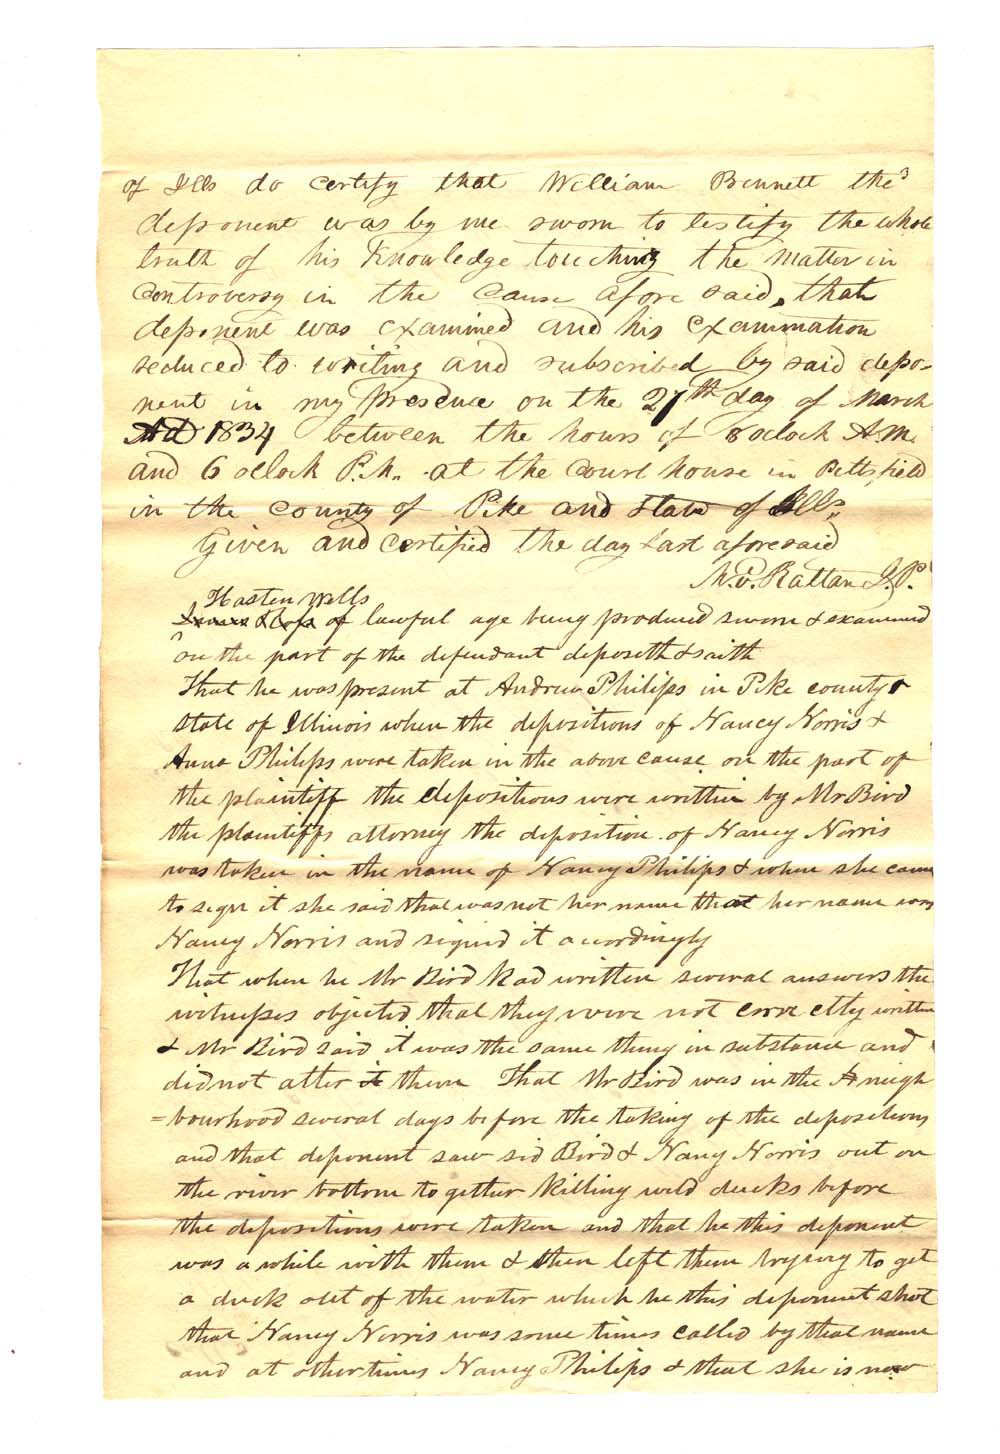 of Ills do certify that William Bennett the
deponent was by me sworn to testify the whole
truth of his Knowledge touching the matter in
controversy in the cause afore said, that
deponent was examined and his examination
reduced to writing and subscribed by said depo-
nent in my presence on the 27th day of March
Ad 1834 between the hours of 8 oclock A.M.
and 6 oclock P.M. at the court house in Pittsfield
in the county of Pike and State of Ills.
Given and certified the day last aforesaid
Rattan J.P.
Hasten Wells
of lawful age being produced sworn & examined
on the part of the defendant deposeth & saith
That he was present at Andrew Philips in Pike county &
state of Illinois when the depositions of Nancy Norris &
Anna Philips were taken in the above cause on the part of
the plaintiff the depositions were written by Mr Bird
the plaintiffs attorney the deposition of Nancy Norris
was taken in the name of Nancy Philips & when she came
to sign it she said that was not her name that her name was
Nancy Norris and signed it accordingly
That when he Mr Bird had written several answers the
witnesses objected that they were not correctly written
& Mr Bird said it was the same thing in substance and
did not alter it them That Mr Bird was in the neigh
=bourhood several days before the taking of the depositions
and that deponent saw sid Bird & Nancy Norris out on
the river bottom together killing wild ducks before
the depositions were taken and that he this deponent
was a while with them & then left them trying to get
a duck out of the water which he this deponent shot
that Nancy Norris was some times called by that name
and at other times Nancy Philips & that she is now